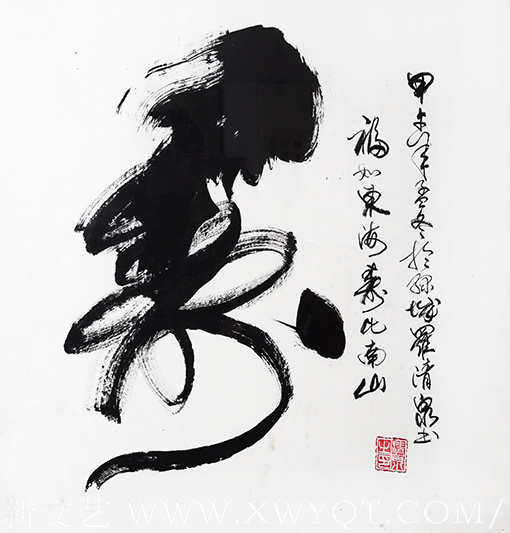 寿
甲午年孟冬於绵城羅清泉书
福如東海寿比南山
新文艺 WWW.XWYQT.COM/